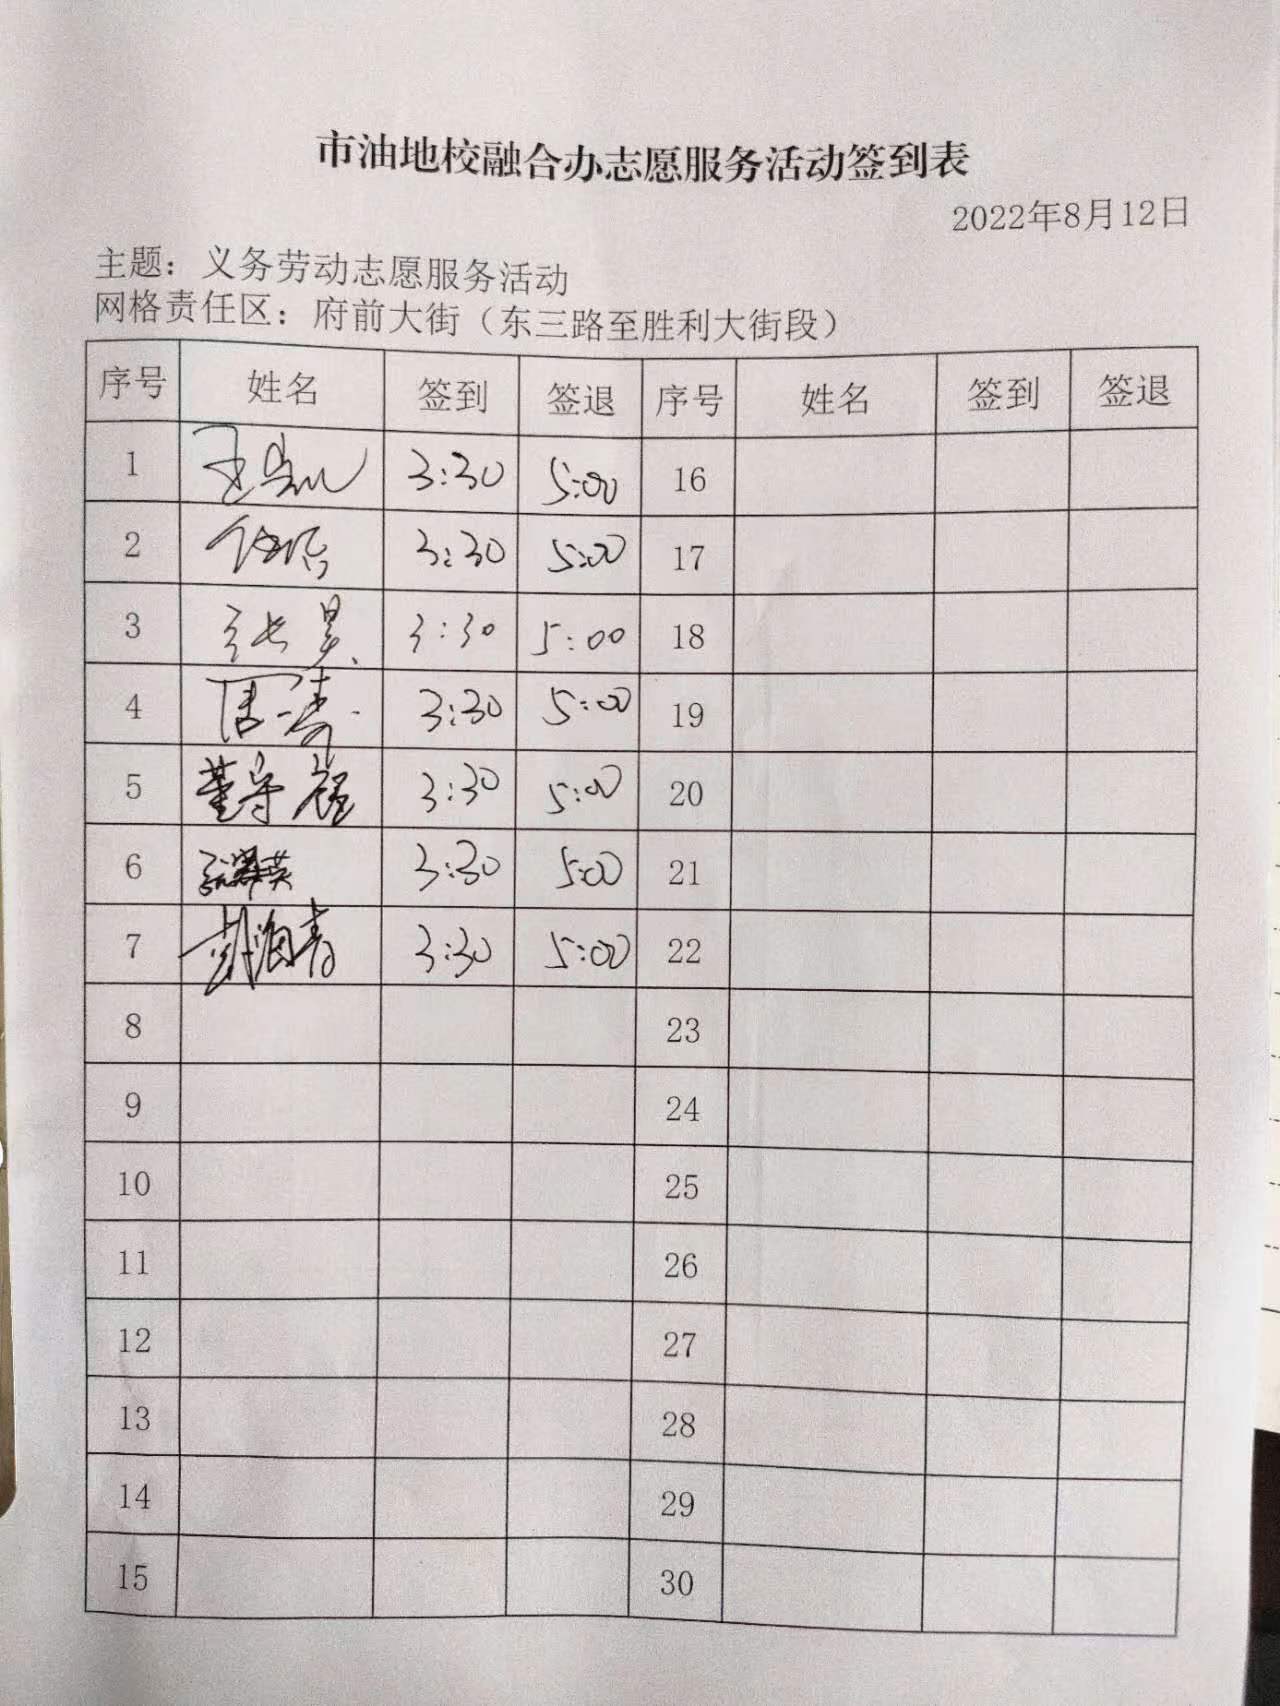 市油地校融合办志愿服务活动签到表
2022年8月12日
主题：义务劳动志愿服务活动
网格责任区：府前大街（东三路至胜利大街段）
序号 姓名 签到 签退 序号 姓名 签到 签退
1 3:30 5:00 16
2 3:30 5:00 17
3 张昊 3:30 5:00 18
4 周涛 3:30 5:00 19
5 董守 3:30 5:00 20
6 英 3:30 5:00 21
7 海青 3:30 5:00 22
8 23
9 24
10 25
11 26
12 27
13 28
14 29
15 30